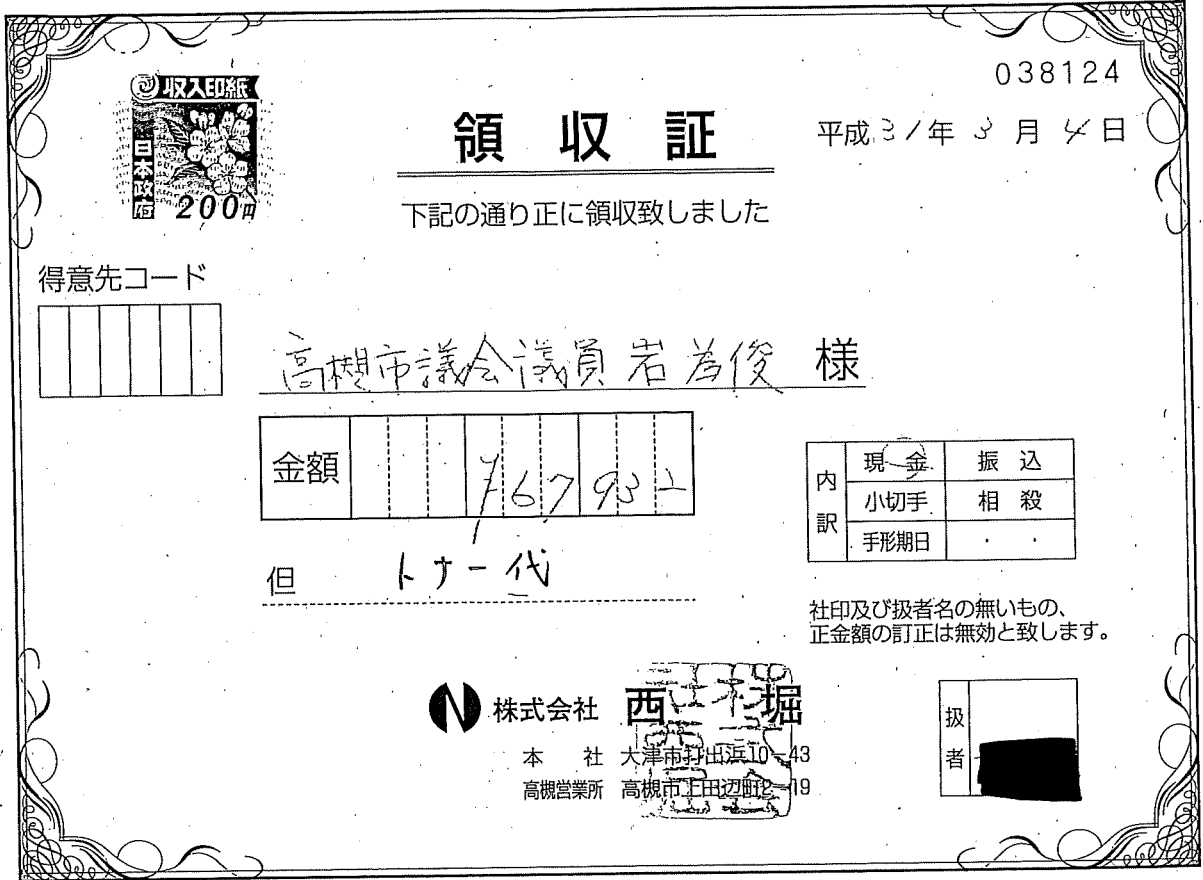 038124
収入印紙
日本政府
200円
領収証
平成31年3月4日
下記の通り正に領収致しました
得意先コード
高槻市議会議員 岩為俊 様
金額 ¥67932
内訳
現金 振込
小切手 相殺
手形期日 ・ ・
但 トナー代
社印及び扱者名の無いもの、
正金額の訂正は無効と致します。
N 株式会社 西堀
本社 大津市打出浜10-43
高槻営業所 高槻市上田辺町2-19
扱者